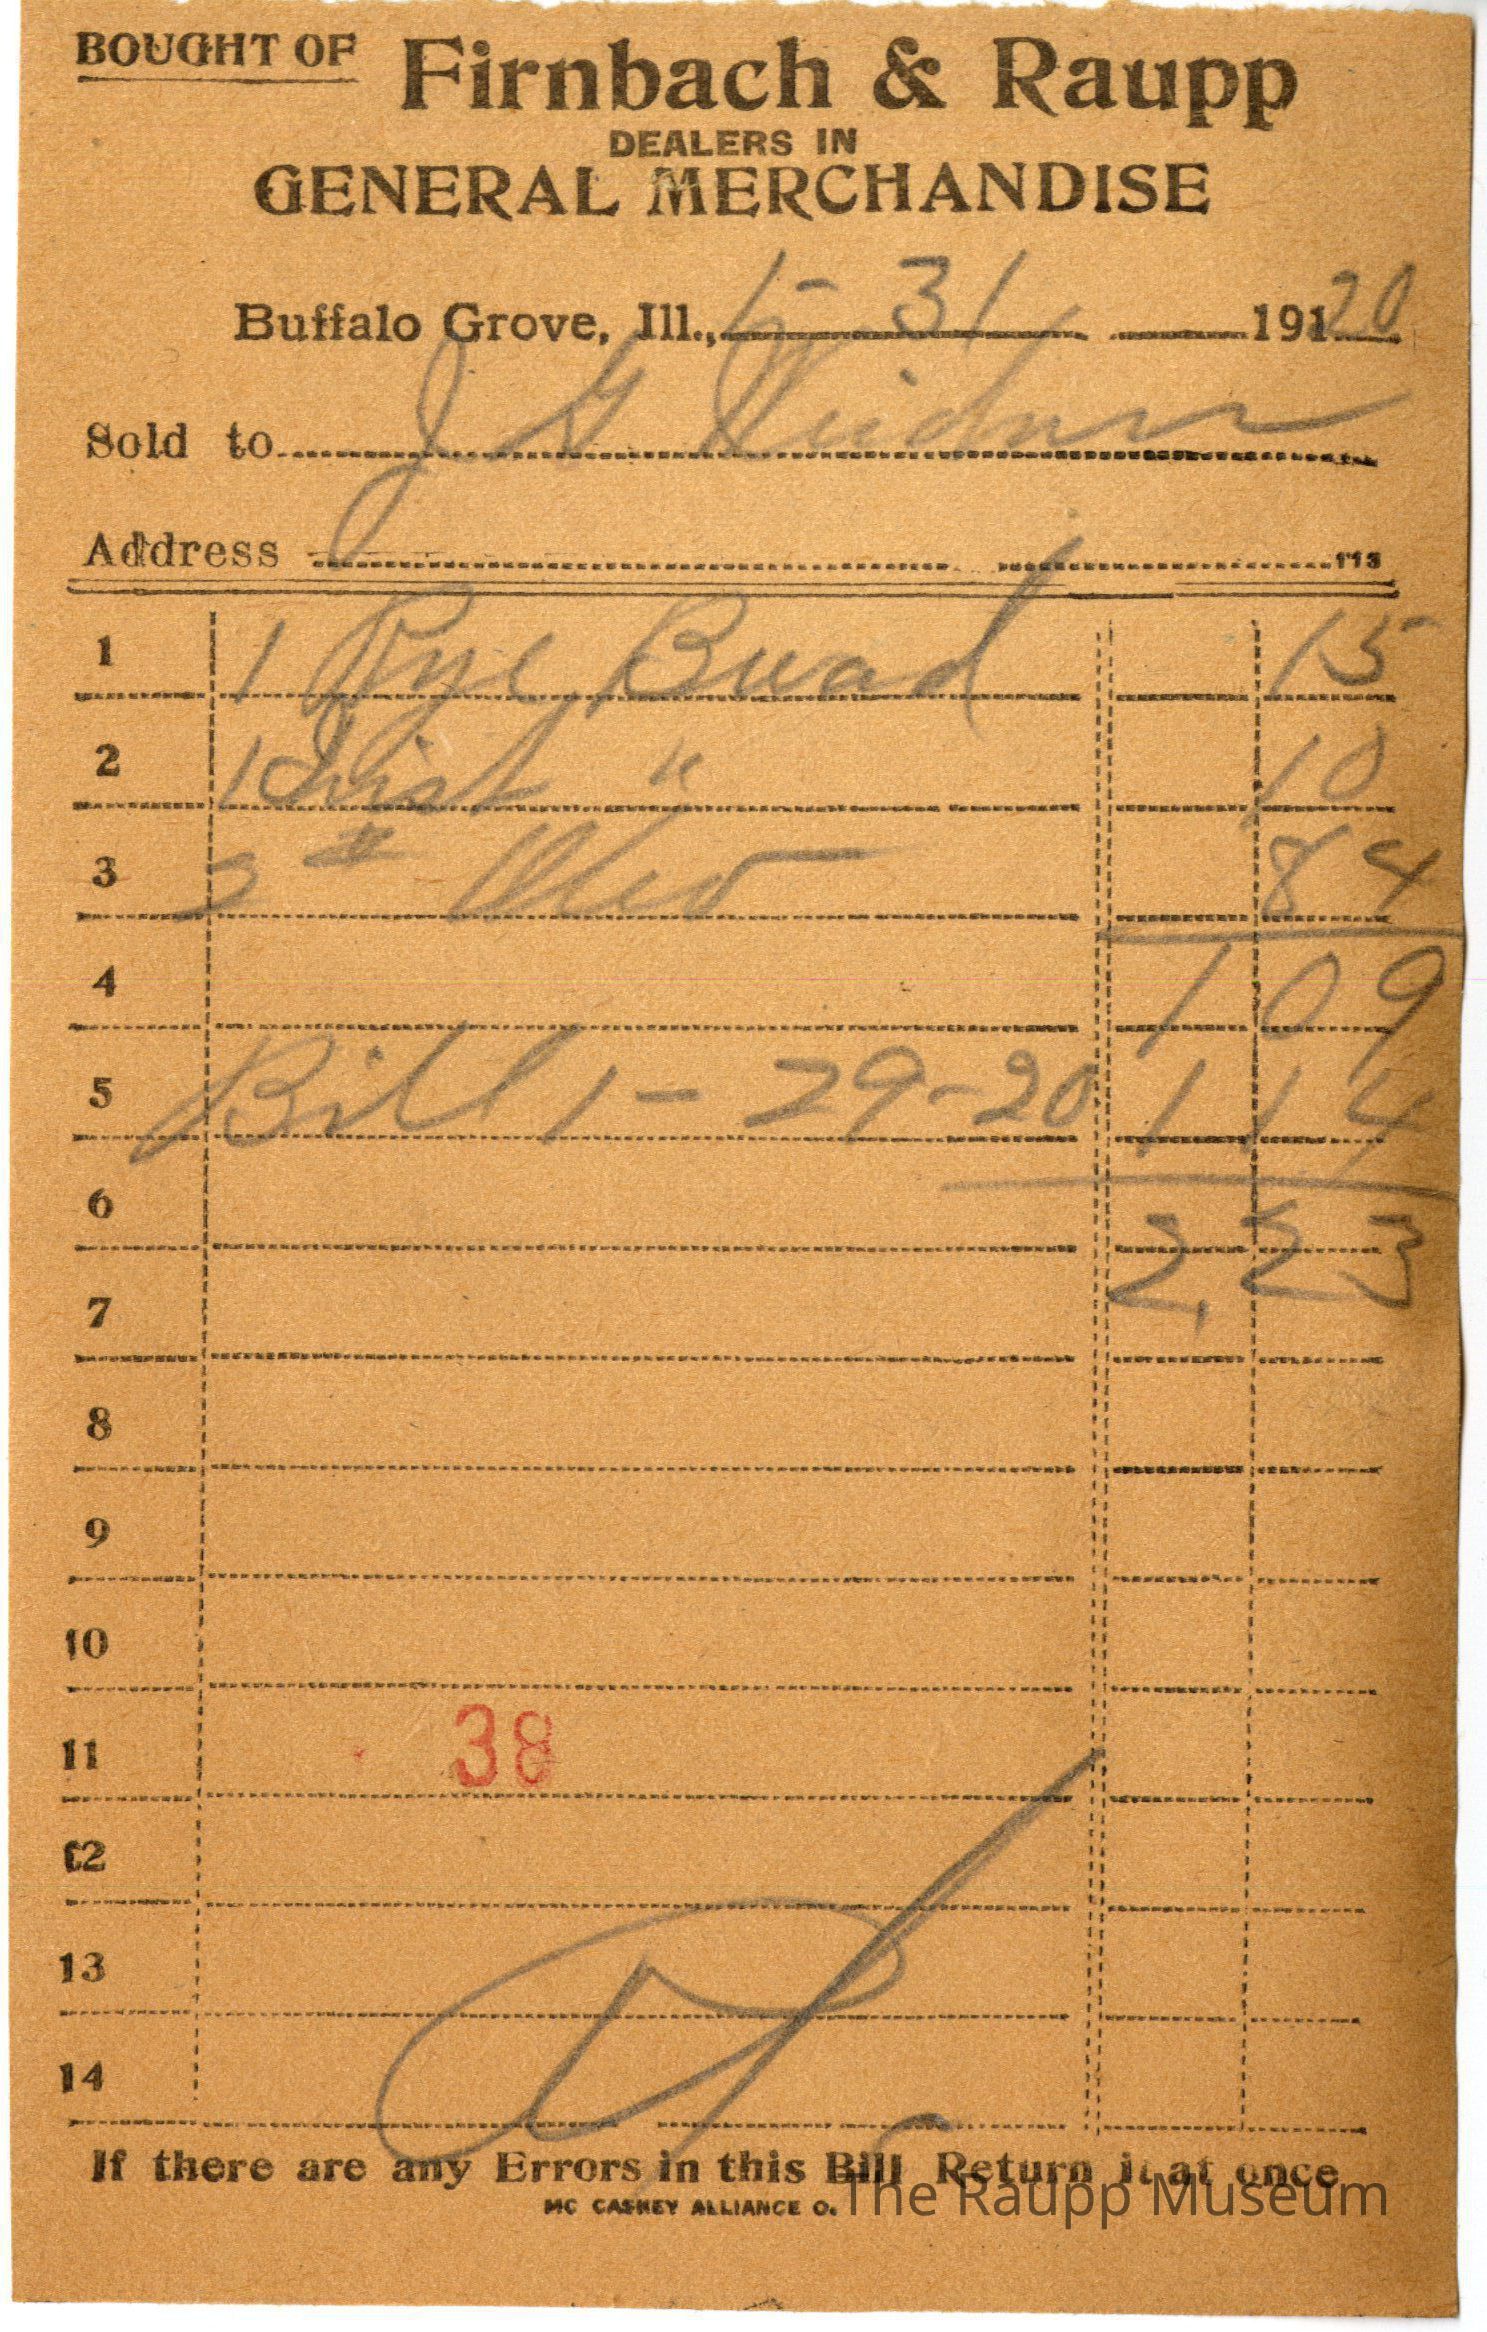 BOUGHT OF Firnbach & Raupp
DEALERS IN
GENERAL MERCHANDISE
Buffalo Grove, Ill., 1- 31 191 20
Sold to J G Weidner
Address 113
1 1 Rye Bread 15
2 1 Twist " 10
3 2 # Oleo 84
4 1 09
5 Bill 1-29-20 1 14
6 2,23
7
8
9
10
11 38
12
13
14
If there are any Errors in this Bill Return it at once
MC CASKEY ALLIANCE O.
The Raupp Museum